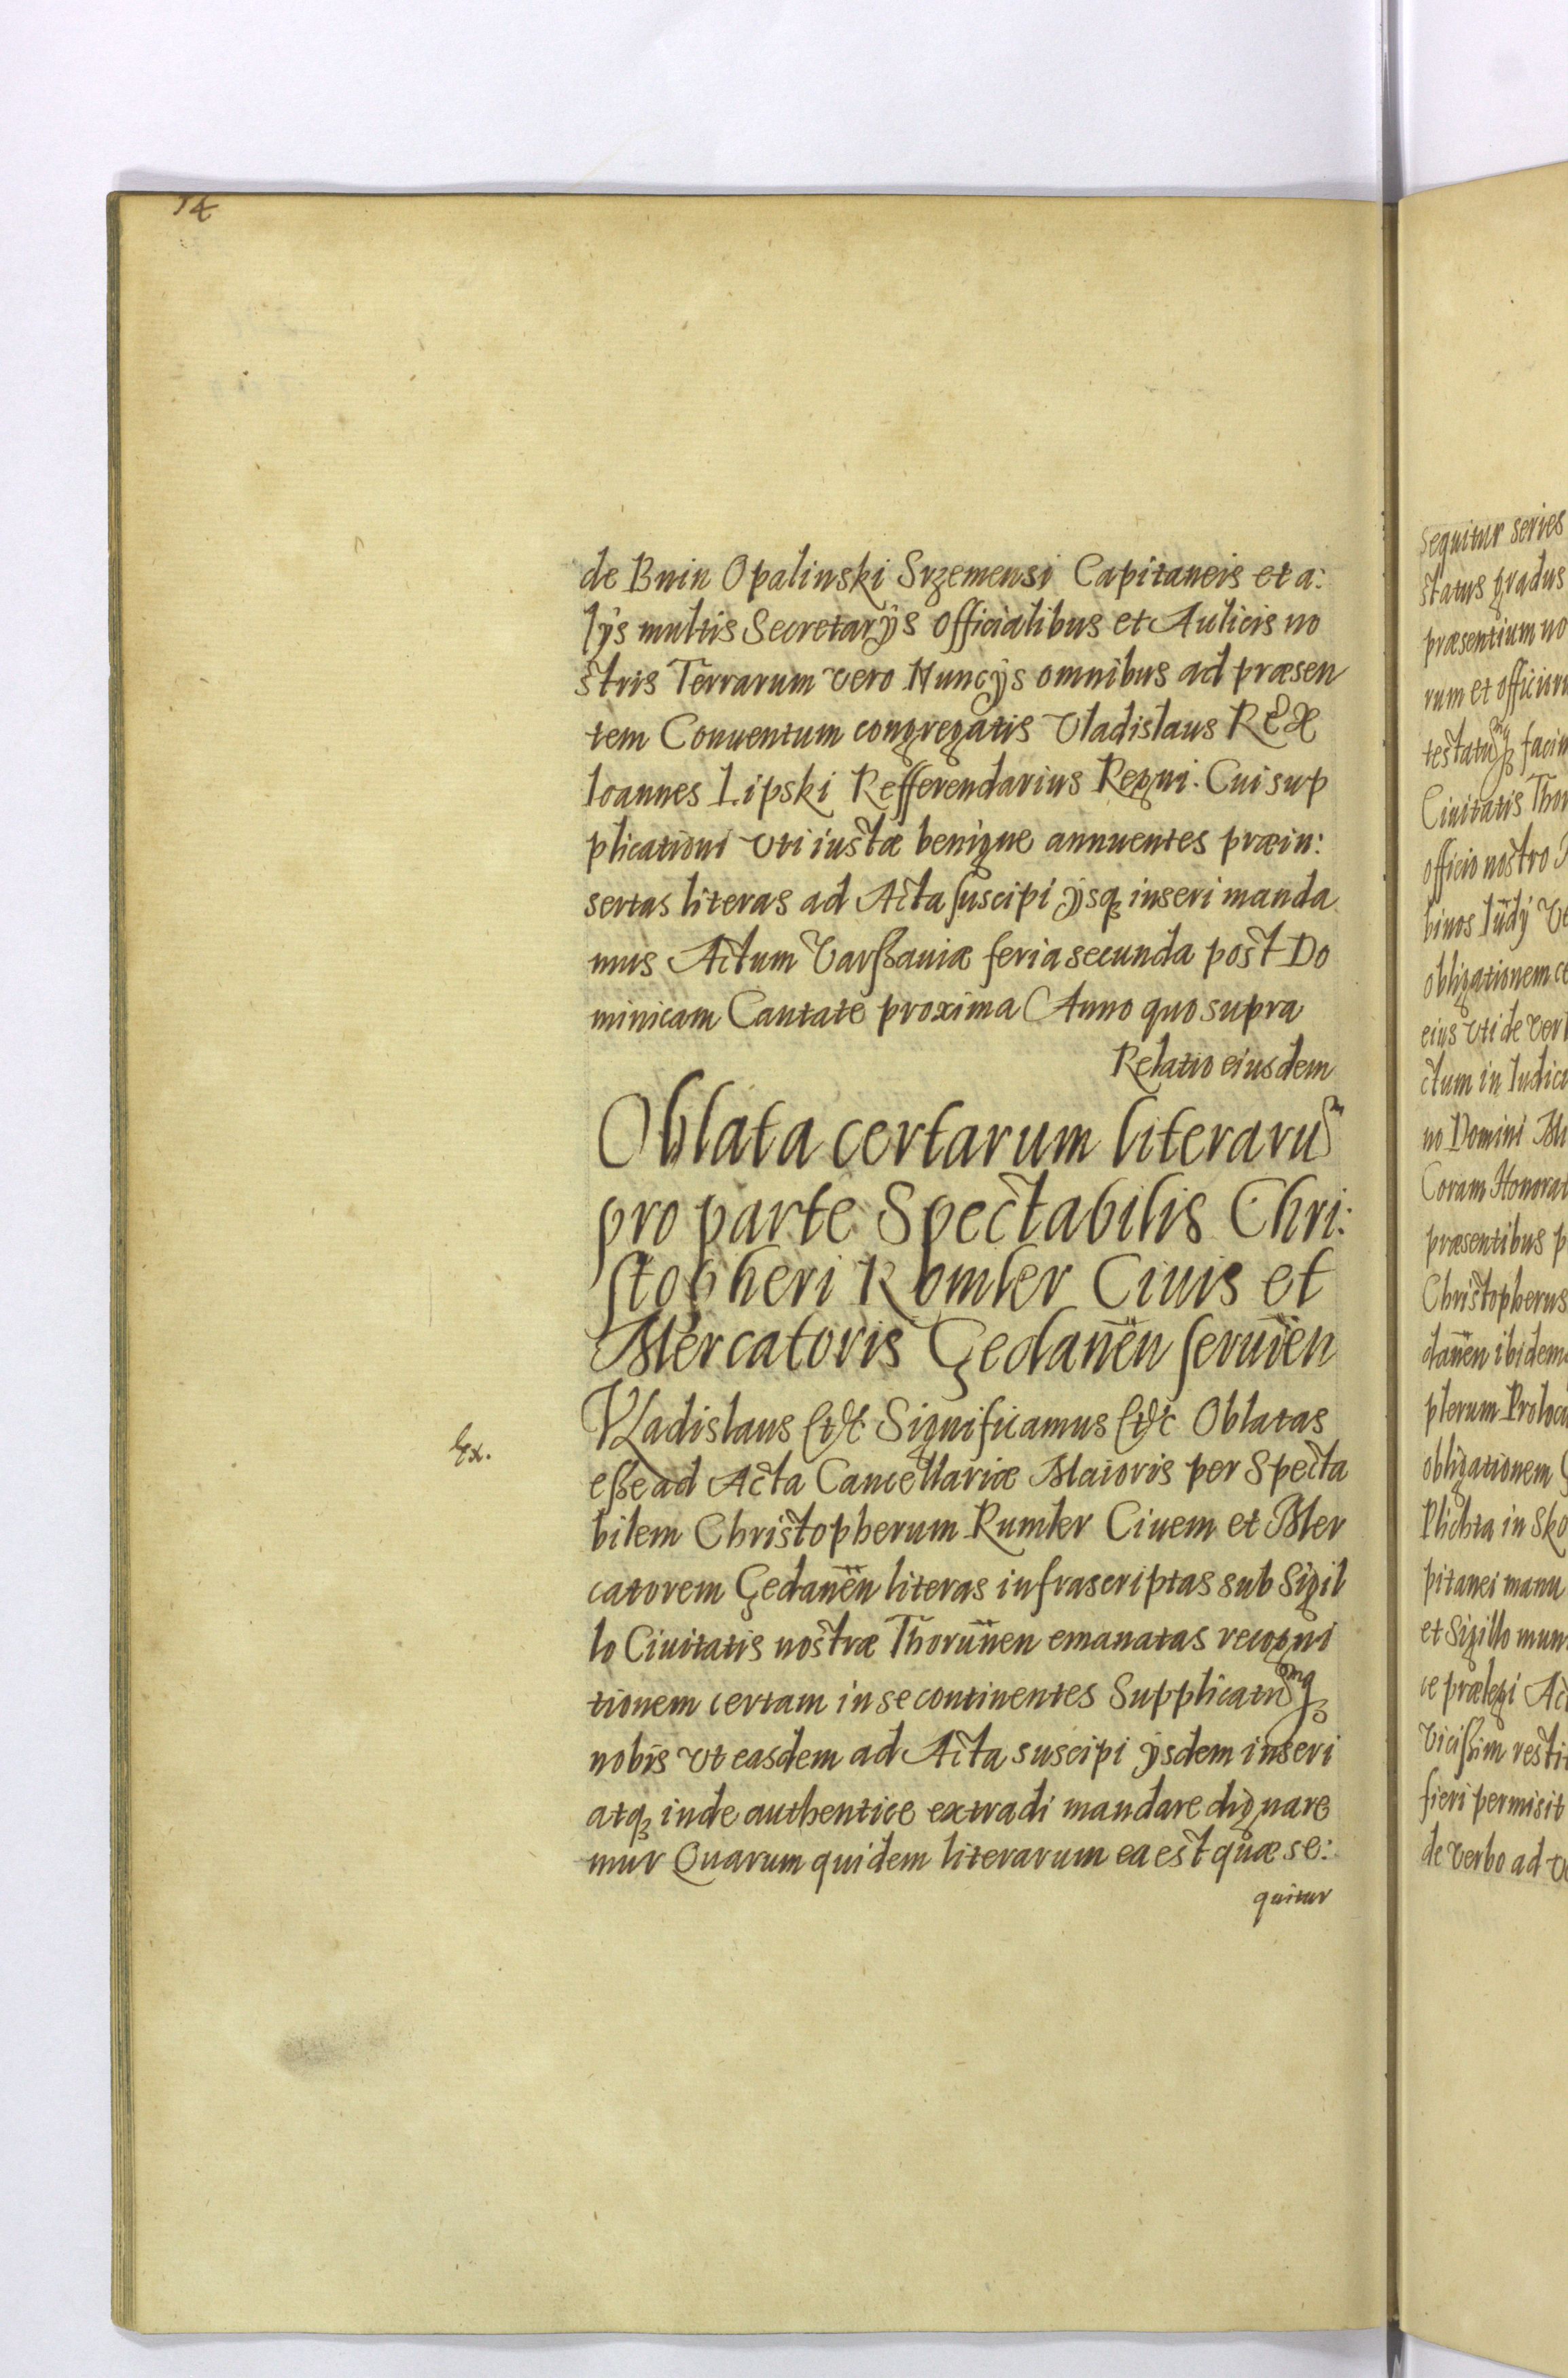 14
de Bnin Opalinski Srzemensi Capitaneis et a:
lÿs multis Secretarÿs officialibus et Aulicis no
stris Terrarum vero Nuncÿs omnibus ad præsen
tem Conuentum congregatis Vladislaus REX
Ioannes Lipski Refferendarius Regni. Cui sup
plicationi vti iustæ benigne annuentes præin:
sertas literas ad Acta suscipi ÿsqꝫ inseri manda
mus Actum Varßauiæ feria secunda post Do
minicam Cantate proxima Anno quo supra
Relatio eiusdem
Oblata certarum literarum
pro parte Spectabilis Chri:
stopheri Romler Ciuis et
Mercatoris Gedanen̄ seruien̄
Ex.
VLadislaus Etc Significamus Etc Oblatas
eße ad Acta Cancellariæ Maioris per Specta
bilem Christopherum Rumler Ciuem et Mer
catorem Gedanen̄ literas infrascriptas sub Sigil
lo Ciuitatis nostræ Thorun̄en emanatas recogni
tionem certam in se continentes Supplicatumqꝫ
nobis vt easdem ad Acta suscipi ÿsdem inseri
atqꝫ inde authentice extradi mandare dignare
mur Quarum quidem literarum ea est quæ se:
quitur
sequitur series
status gradus
præsentium no
rum et officior
testatumqꝫ faci
Ciuitatis Thor
officio nostro
binos
obligationem ce
eius vti de ver
ctum in Iudici
no Domini
Coram Honorat
præsentibus p
Christopherus
danen̄ ibidem
plerum Proloc
obligationem
Plichta in Sko
pitanei manu
et Sigillo mun
ce prælegi Act
vicißim resti
fieri permisit
de verbo ad ve